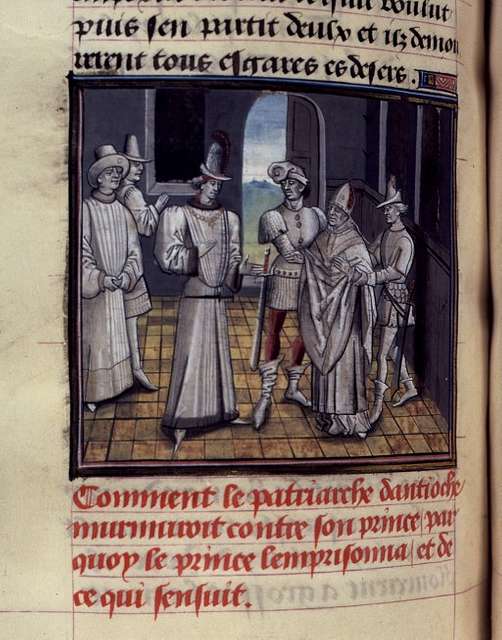 voulut
puis sen partit deulx et ilz demou
rerent tous esgares es desers.
Comment le patriarche dantioche
murmuroit contre son prince par
quoy le prince lemprisonna et de
ce qui sensuit.